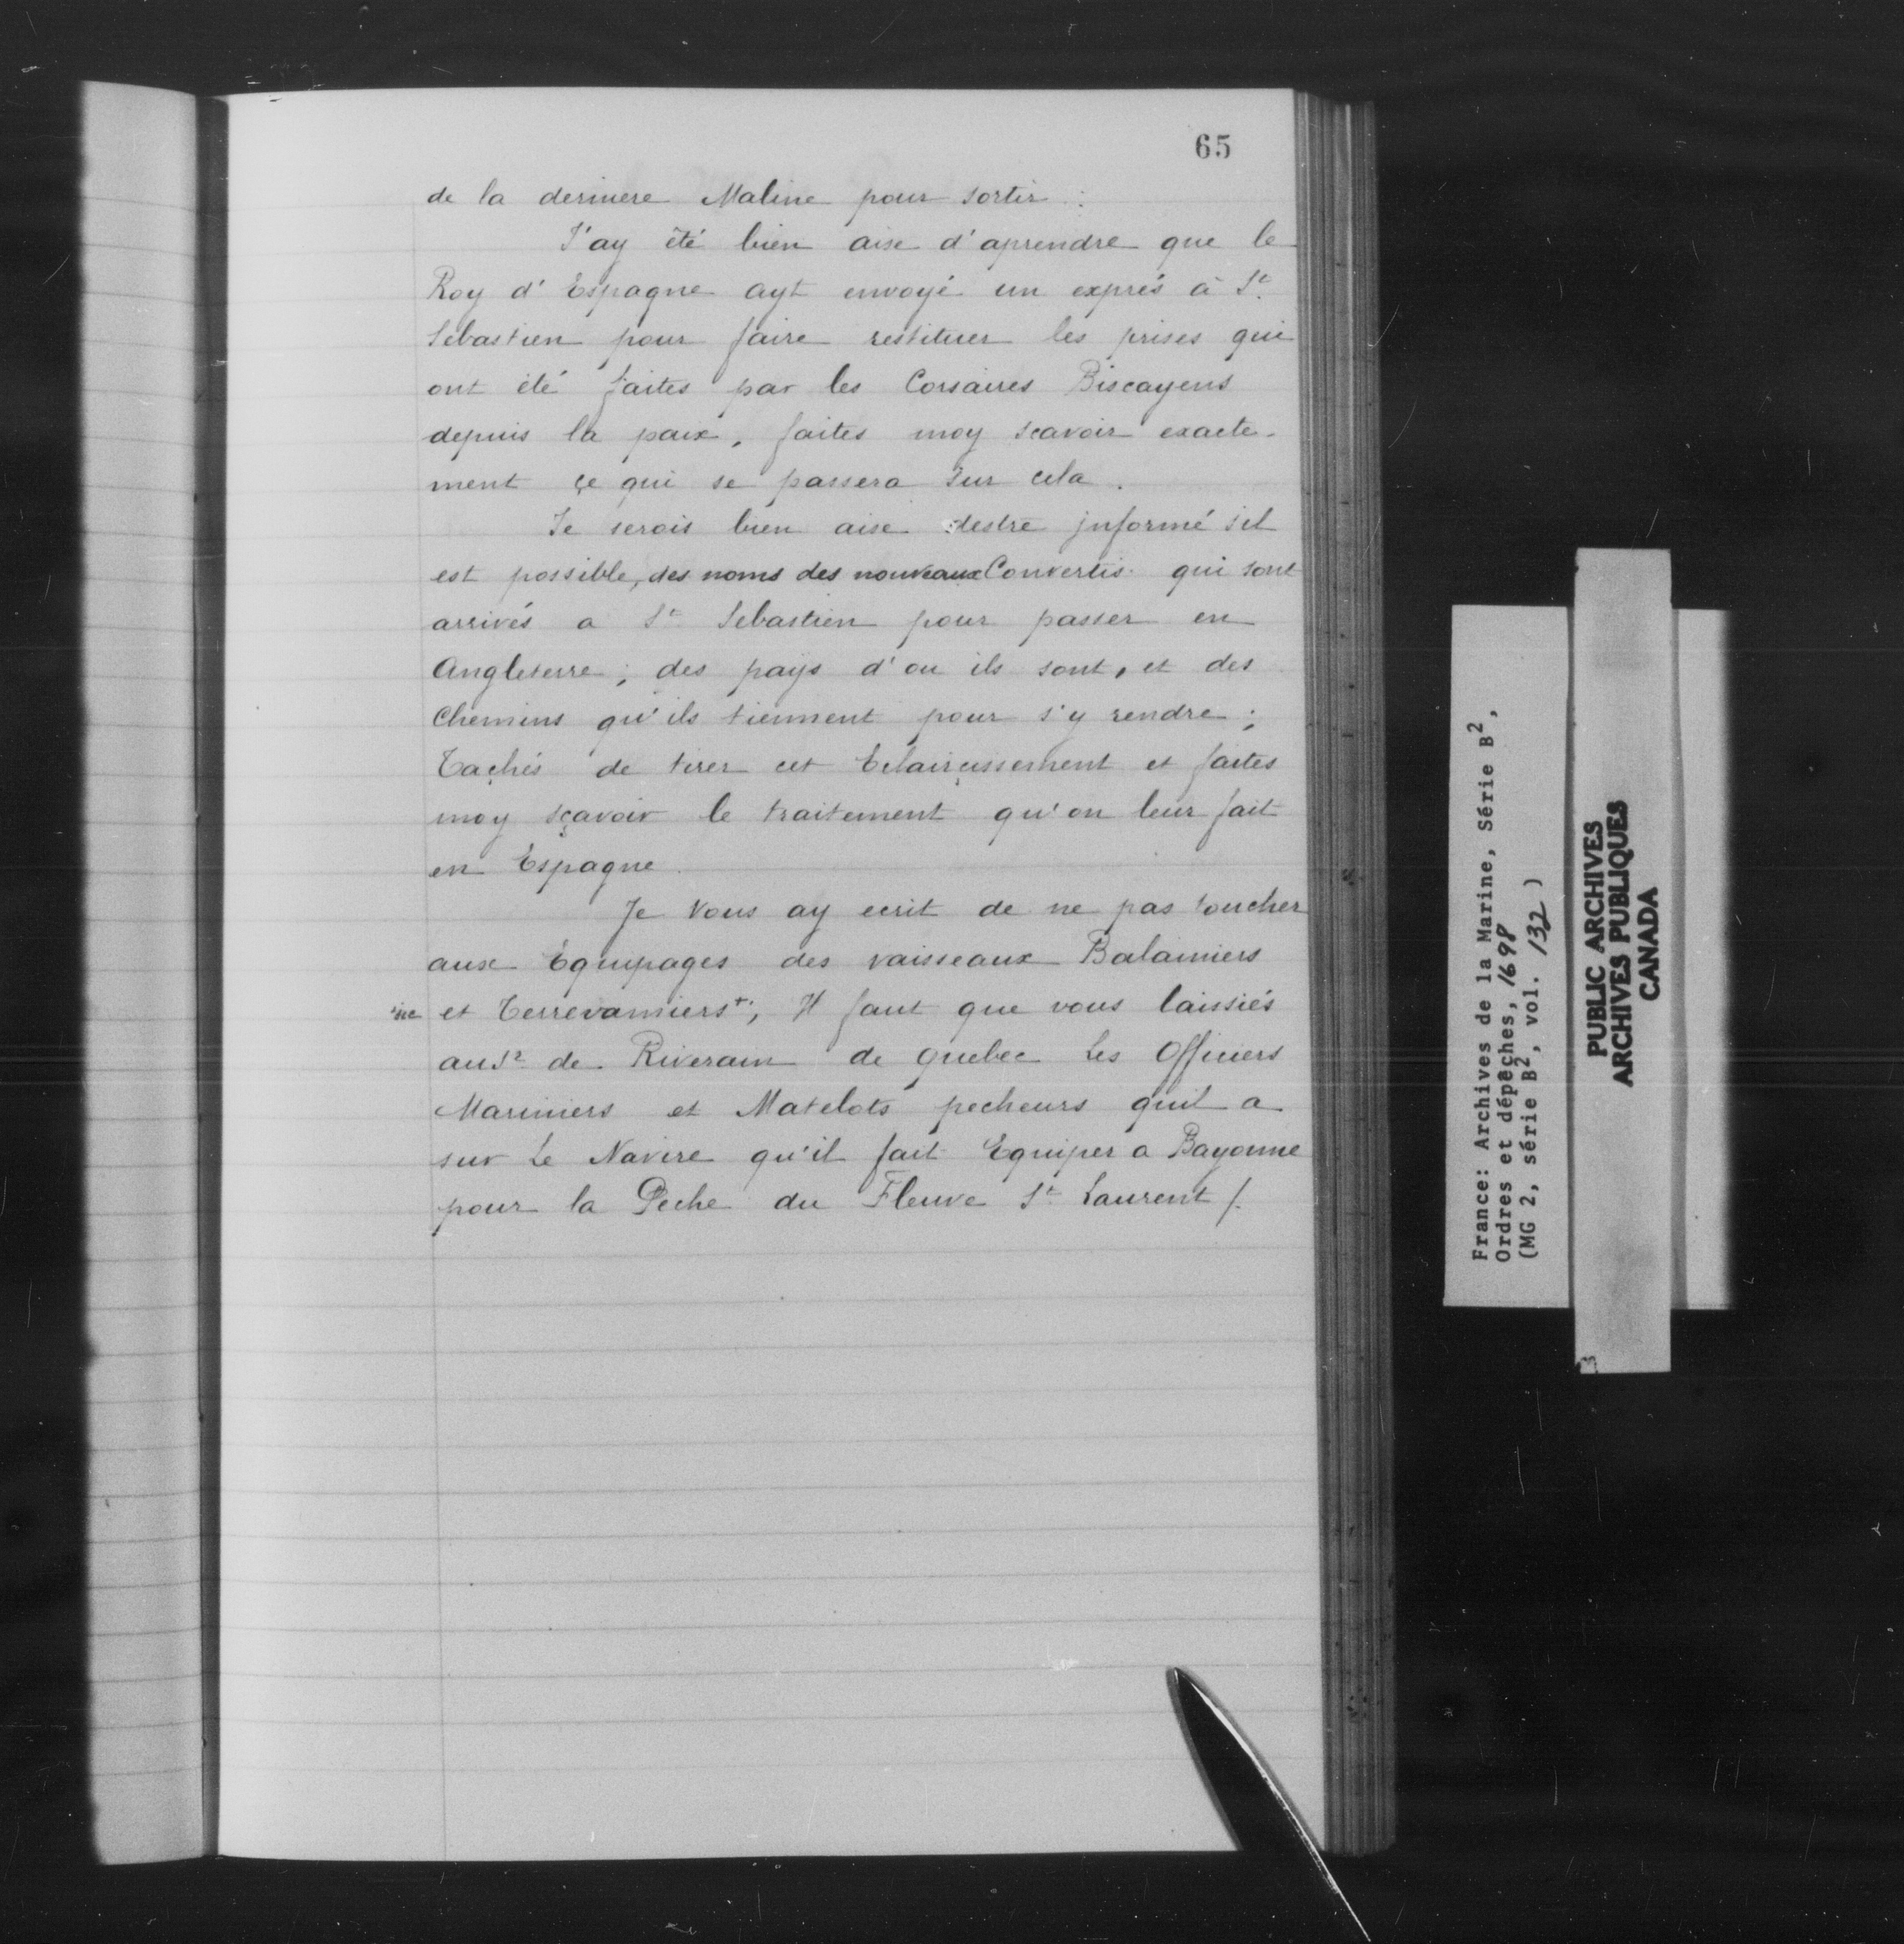 65
de la derniere Maline pour sortir :
J'ay été bien aise d'aprendre que le
Roy d'Espagne ayt envoyé un exprés à St.
Sebastien pour faire restituer les prises qui
ont été faites par les Corsaires Biscayens
depuis la paix, faites moy scavoir exacte-
ment çe qui se passera sur cela.
Je serois bien aise destre jnformé sil
est possible, des noms des nouveaux Convertis qui sont
arrivés a St Sebastien pour passer en
Angleterre ; des pays d'ou ils sont, et des
Chemins qu'ils tiennent pour s'y rendre ;
Tachés de tirer cet Eclaircissement et faites
moy sçavoir le traitement qu'on leur fait
en Espagne.
Je vous ay ecrit de ne pas toucher
aux Equipages des vaisseaux Balainiers
sic et Terrevaniers+; Il faut que vous laissiés
au Sr de Riverain de quebec Les Officiers
Mariniers et Matelots pecheurs quil a
sur Le Navire qu'il fait Equiper a Bayonne
pour la Peche du Fleuve St Laurent /.
France: Archives de la Marine, Série B2,
Ordres et dépêches, 1698
(MG 2, série B2, vol. 132 )
PUBLIC ARCHIVES
ARCHIVES PUBLIQUES
CANADA